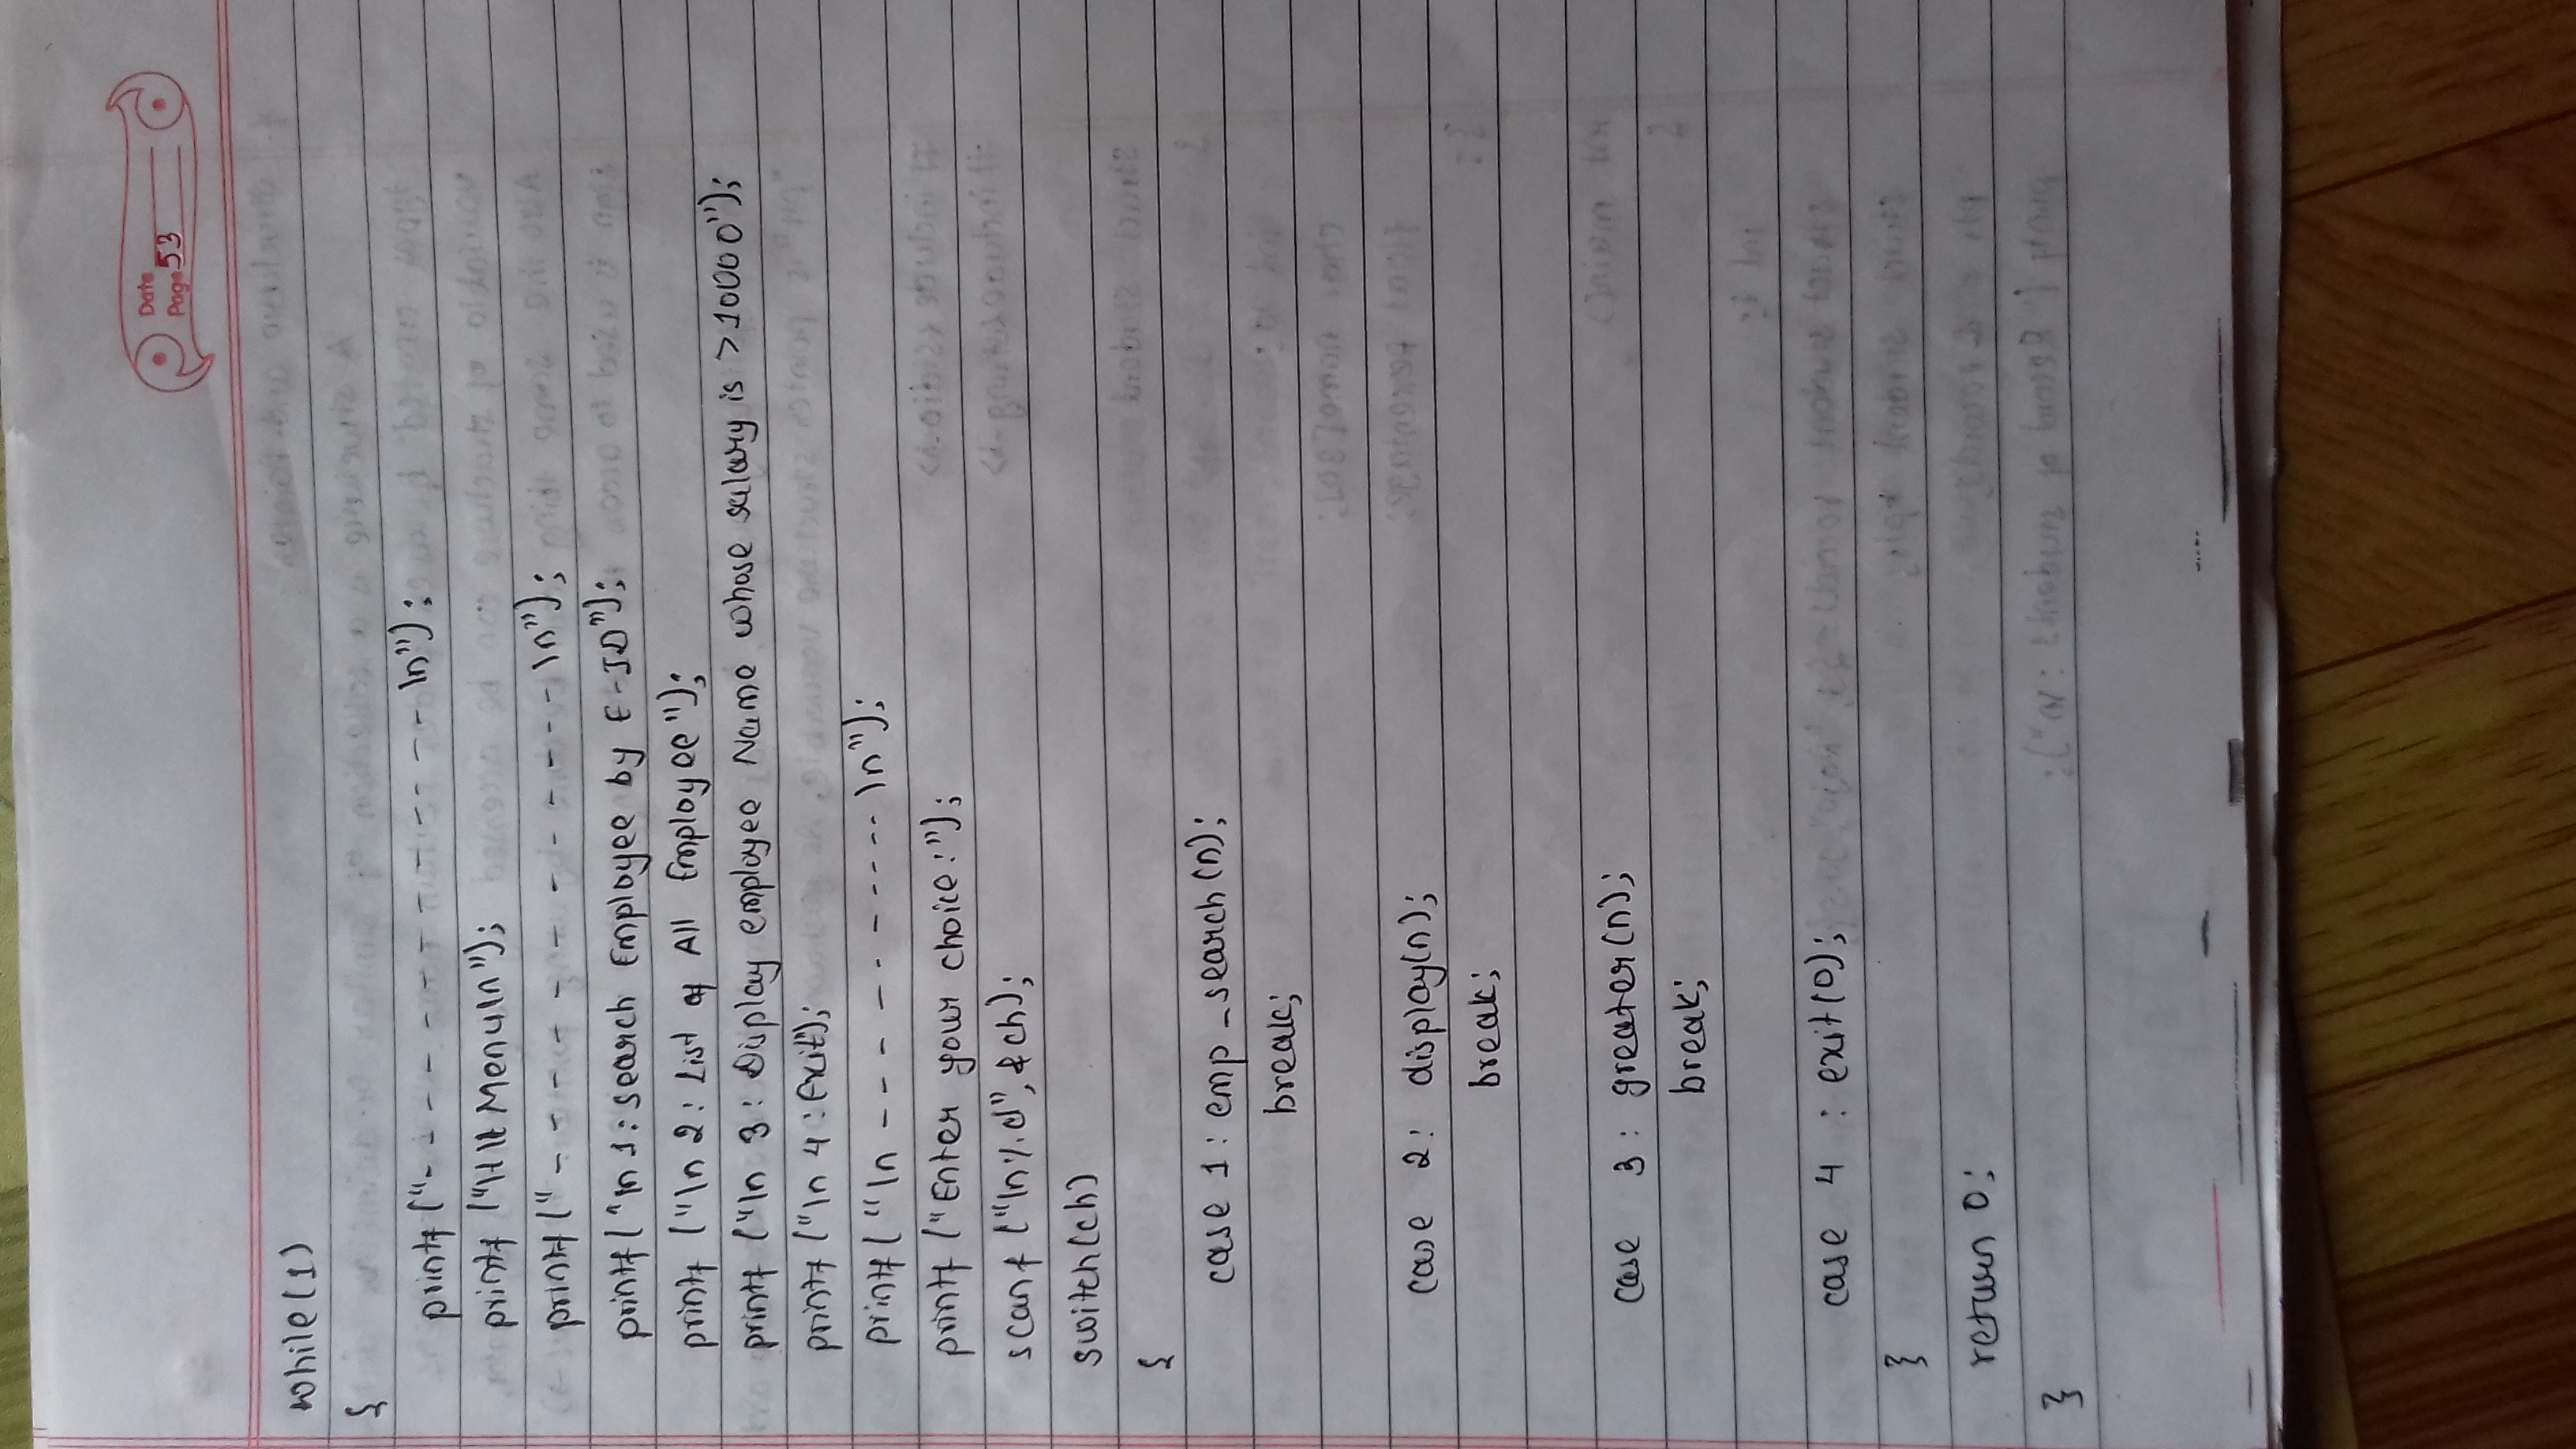 Date
Page 53
while(1)
{
printf ("- - - - - - - - - - - - - \n");
printf ("\t\t Menu\n");
printf (" - - - - - - - - - - - - \n");
printf ("\n 1: search Employee by E-ID");
printf ("\n 2: List of All Employee");
printf ("\n 3: Display employee Name whose salary is >10000");
printf ("\n 4: Exit);
printf ( "\n - - - - - - - - - - - \n");
printf ("Enter your choice:");
scanf ("\n%d", &ch);
switch(ch)
{
case 1: emp_search(n);
break;
case 2: display(n);
break;
case 3: greater(n);
break;
case 4 : exit(0);
}
return 0;
}